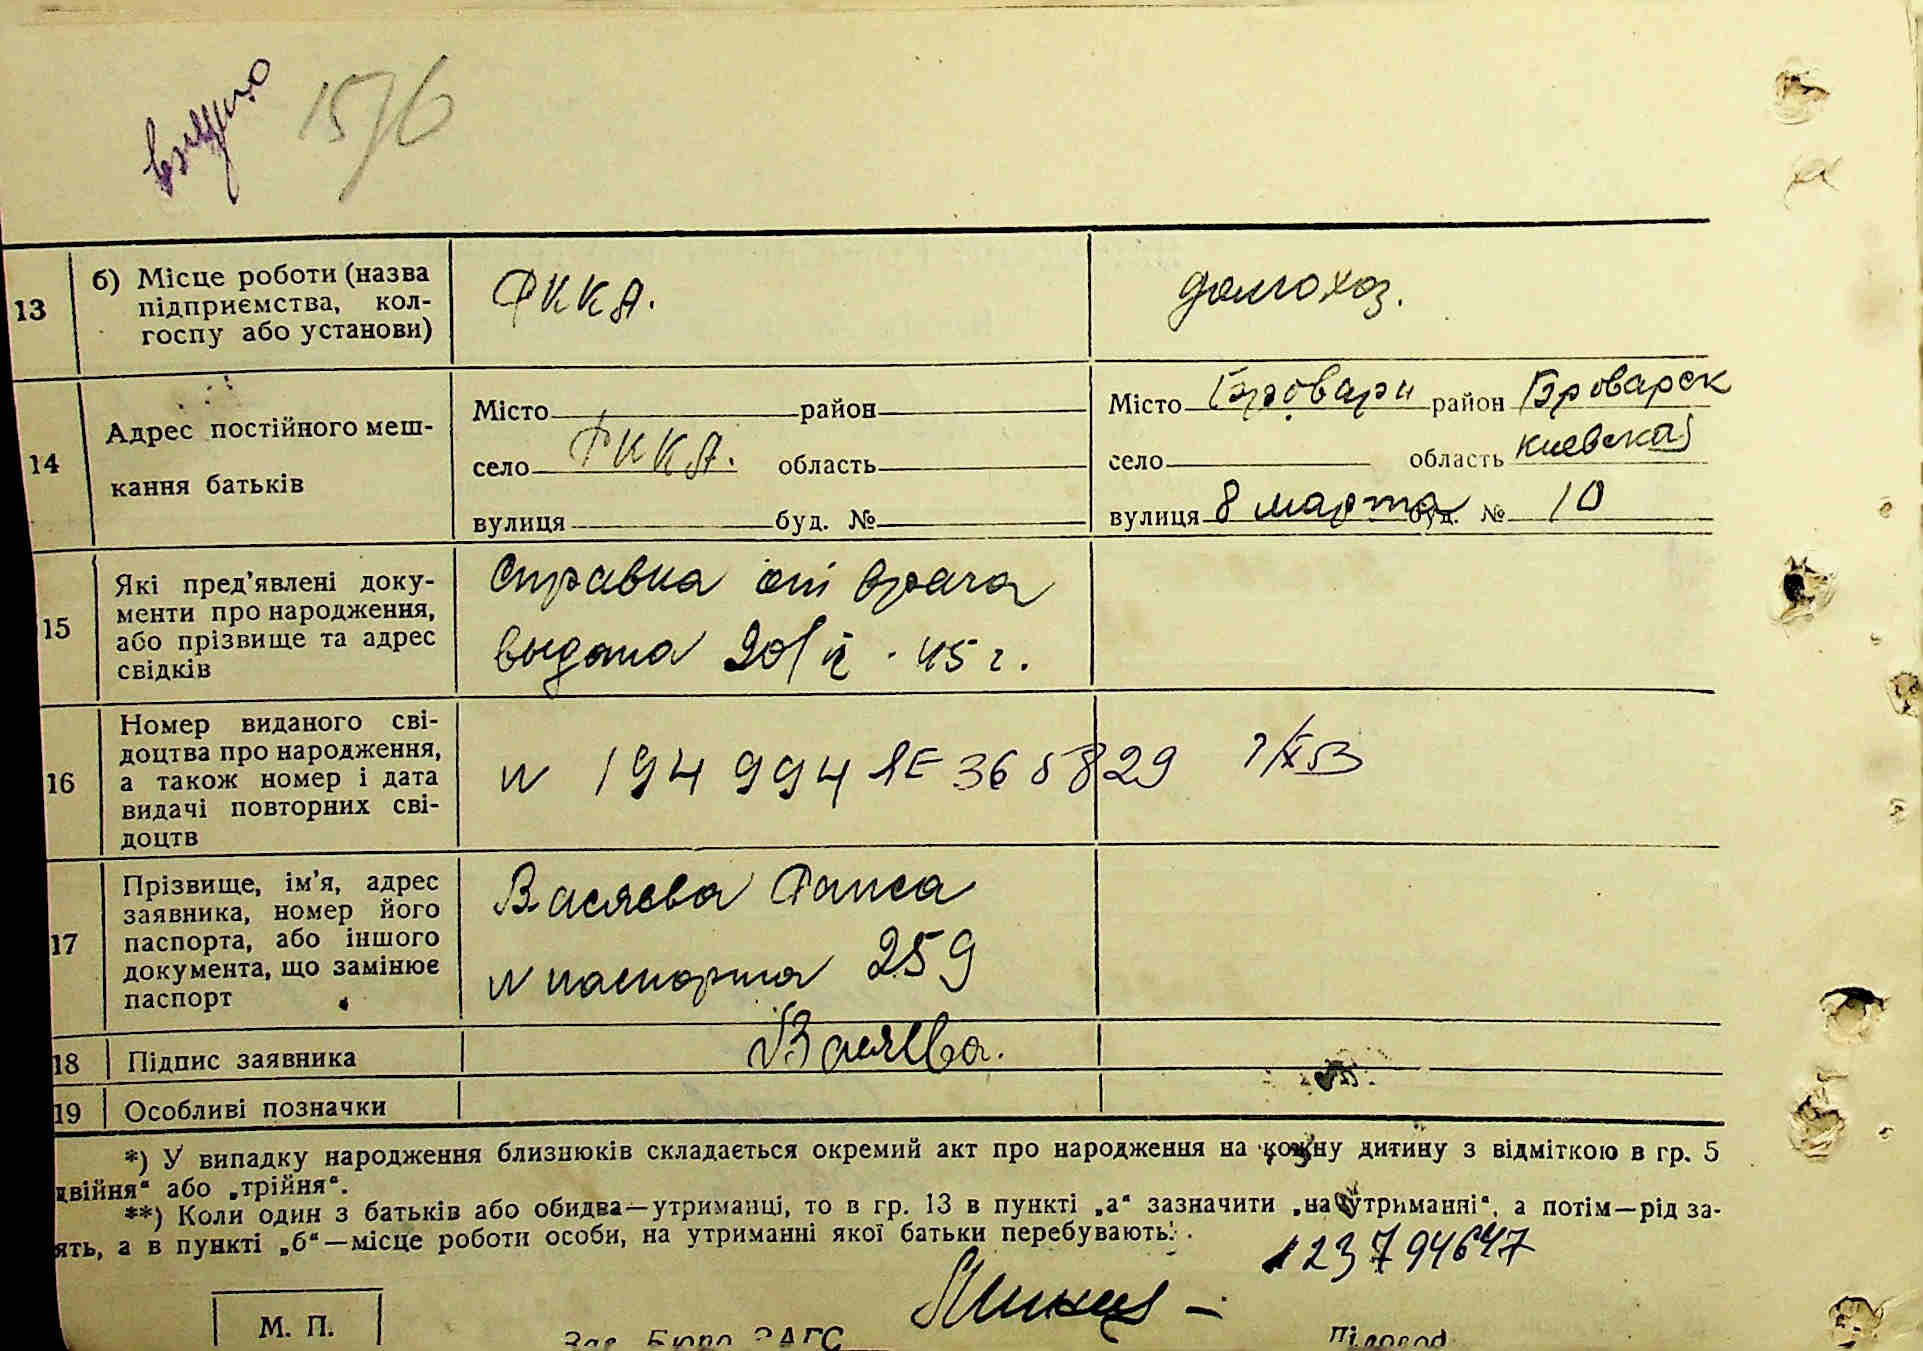 видано 157б
13 б) Місце роботи (назва підприємства, колгоспу або установи)
РККА.
домохоз.
14 Адрес постійного мешкання батьків
Місто район
село РККА. область
вулиця буд. №
Місто Бровари район Броварск
село область киевская
вулиця 8 марта буд. № 10
15 Які пред'явлені документи про народження, або прізвище та адрес свідків
Справка от врача
выдана 20/ 45 г.
16 Номер виданого свідоцтва про народження, а також номер і дата видачі повторних свідоцтв
N 194994 365829 53
17 Прізвище, ім'я, адрес заявника, номер його паспорта, або іншого документа, що замінює паспорт
Васяева Раиса
N паспорта 259
18 Підпис заявника
Васяева.
19 Особливі позначки
*) У випадку народження близнюків складається окремий акт про народження на кожну дитину з відміткою в гр. 5
двійня" або „трійня".
**) Коли один з батьків або обидва—утриманці, то в гр. 13 в пункті „а" зазначити „на утриманні", а потім—рід за-
ять, а в пункті „б"—місце роботи особи, на утриманні якої батьки перебувають.
123794647
М. П.
Зав. Бюро ЗАГС
Діловод